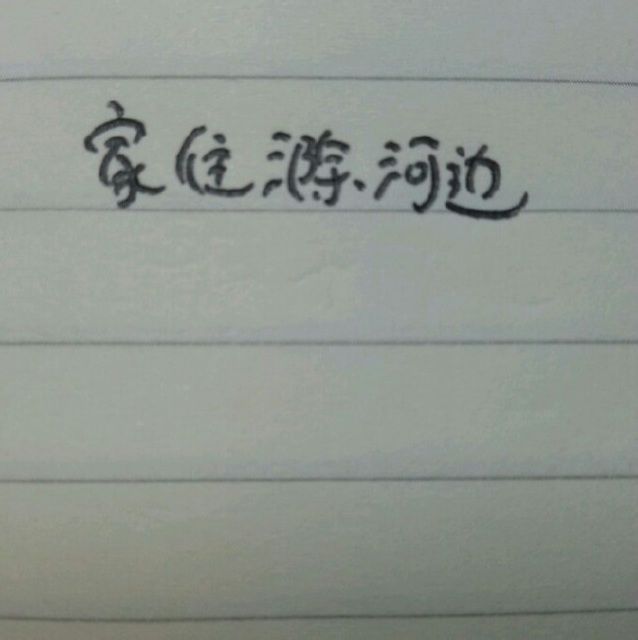 家住滁河边